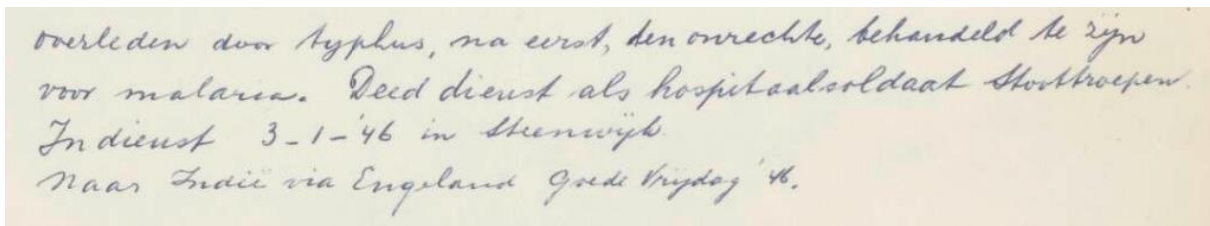 overleden door typhus, na eerst, ten onrechte, behandeld te zijn
voor malaria. Deed dienst als hospitaalsoldaat Stoottroepen.
In dienst 3-1-'46 in Steenwijk
Naar Indië via Engeland Goede Vrijdag '46.